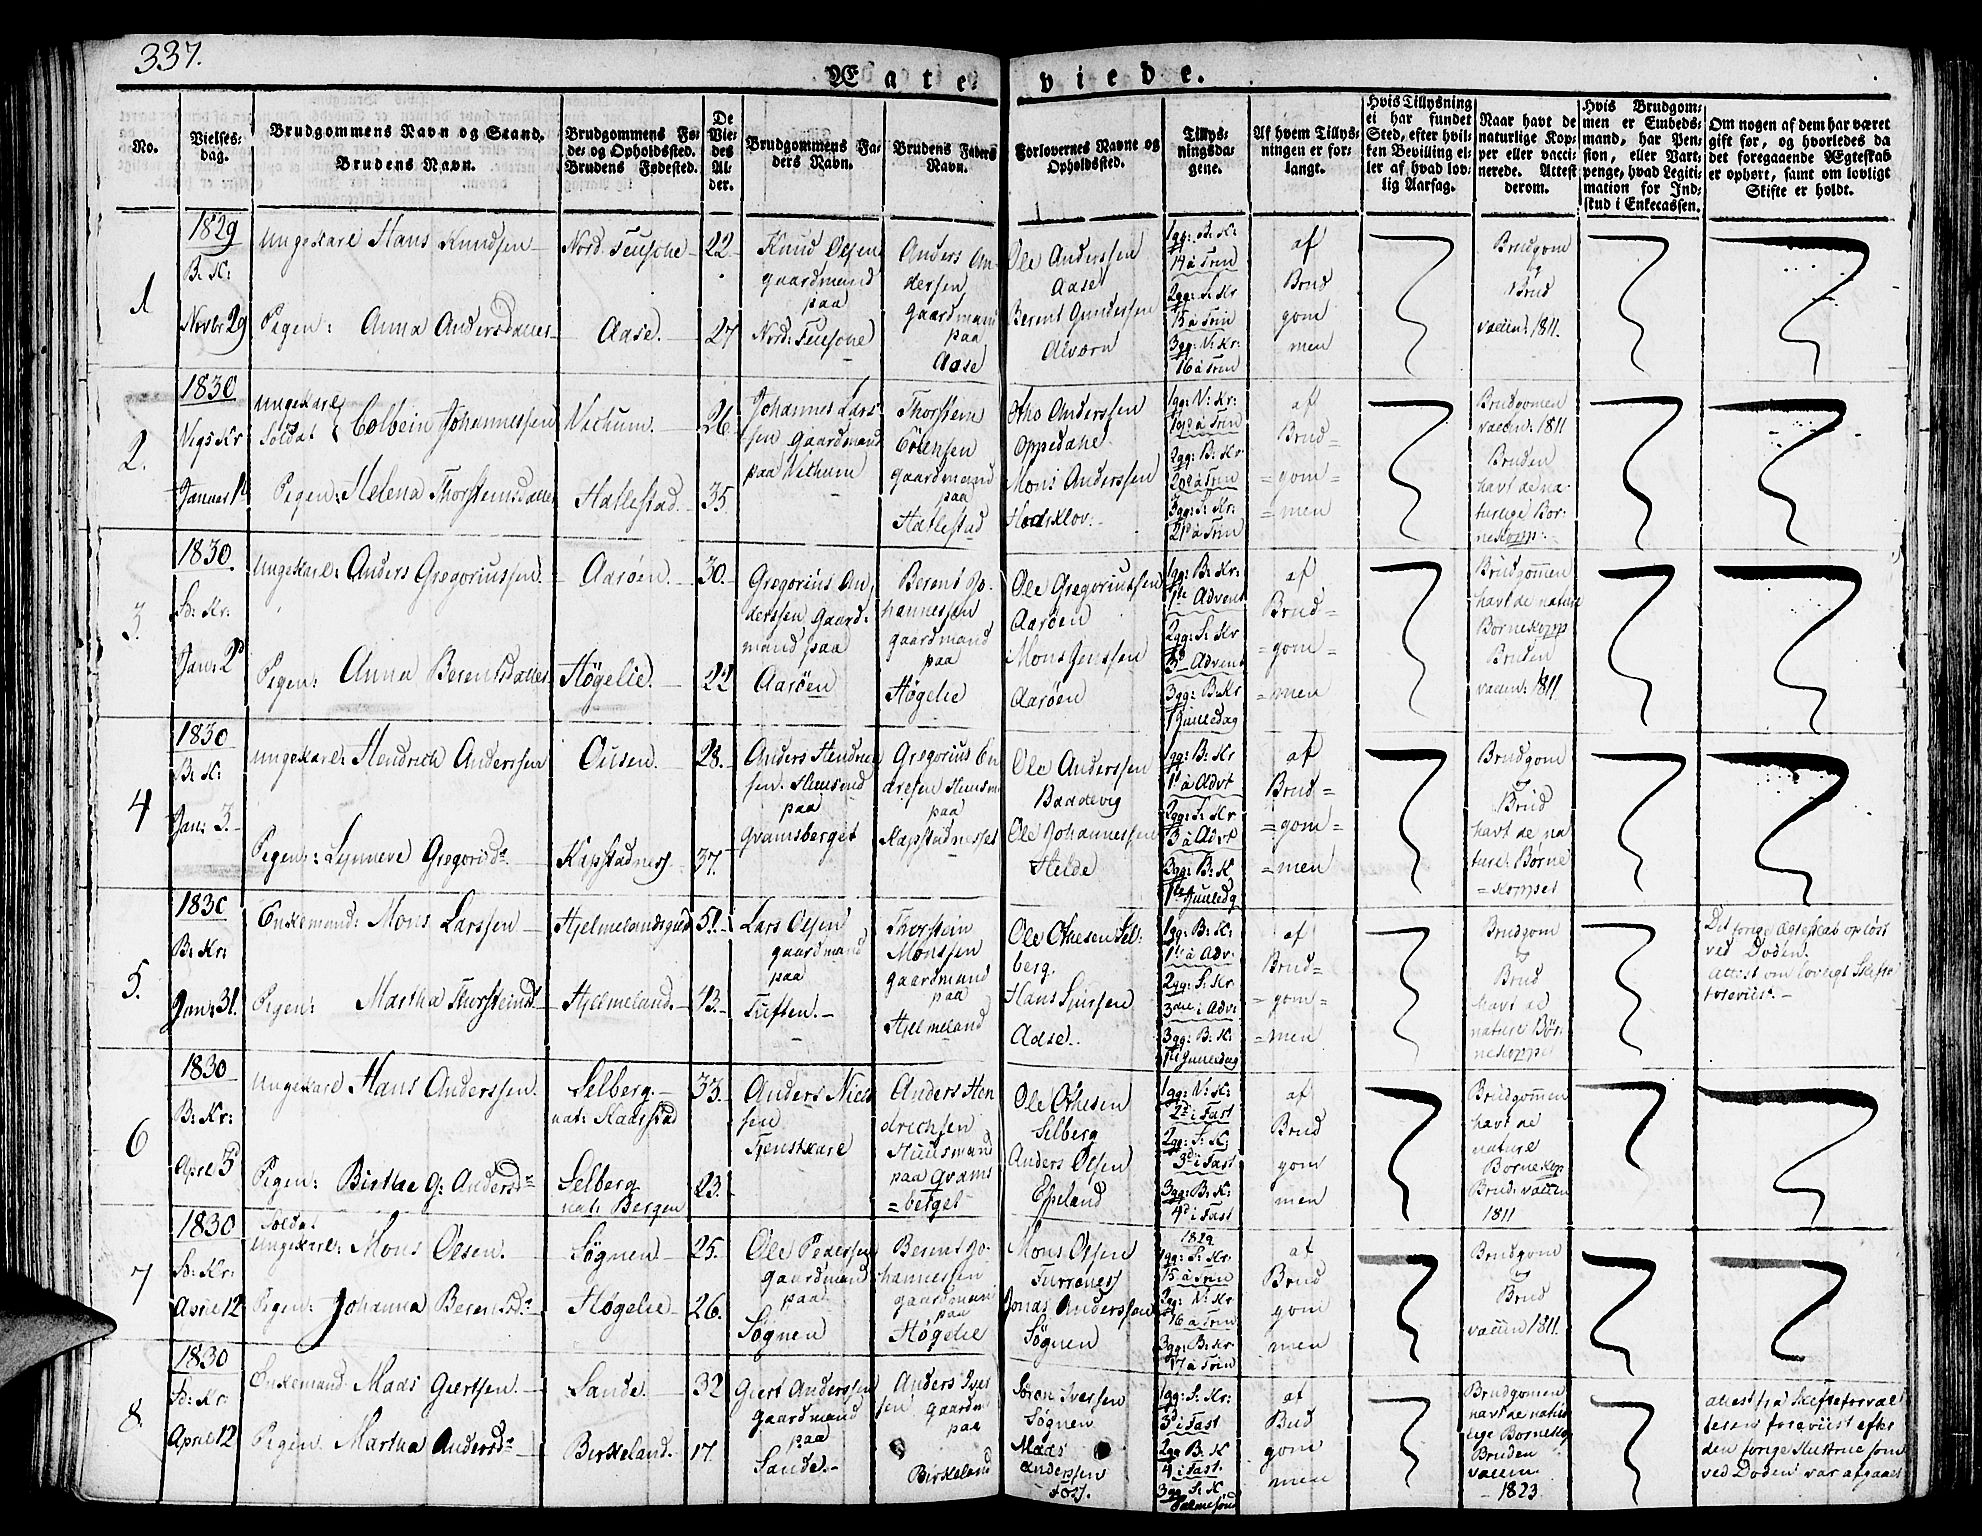 337.
Ægteviede.
No.
Vielses-
dag.
Brudgommens Navn og Stand.
Brudens Navn.
Brudgommens Fø-
de- og Opholdssted.
Brudens Fødested.
De
Vie-
des
Al-
der.
Brudgommens Fa-
ders Navn.
Brudens Faders
Navn.
Forlovernes Navne og
Opholdssted.
Tillys-
ningsda-
gene.
Af hvem Tillys-
ningen er for-
langt.
Hvis Tillysning
ei har fundet
Sted, efter hvil-
ken Bevilling el-
ler af hvad lov-
lig Aarsag.
Naar havt de
naturlige Kop-
per eller vacci-
nerede. Attest
derom.
Hvis Brudgom-
men er Embeds-
mand, har Pen-
sion, eller Vart-
penge, hvad Legiti-
mation for Ind-
skud i Enkecassen.
Om nogen af dem har været
gift før, og hvorledes da
det foregaaende Ægteskab
er ophørt, samt om lovligt
Skifte er holdt.
1
1829
B: K:
Novbr 29
Ungekarl Hans Knudsen
Pigen: Anna Andersdatter
Aase.
22
27
Knud Olsen
gaardmand
paa
Anders An-
dersen
gaardmand
paa
Aase
Ole Anderssen
Aase
Berent Gunderssen
Alværn
1gg: B: K:
14 à Trin
2gg: S: Kr
15 à Trin
3gg: V: Kr:
16 à Trin
af
Brud
gom
men
Brudgom
og
Brud
vaccin: 1811.
2.
1830
Vigs Kr
Januar 1
Ungekarl
Soldat Colbein Johannessen
Pigen: Helena Thorsteinsdatter
Vethum.
Hatlestad.
26
35
Johannes Lars-
sen Gaardmand
paa Vethum
Thorstein
gaardmand
paa
Hatlestad
Otho Anderssen
Oppedahl
Mons Anderssen
1gg: V: Kr:
19 à Trin
2gg: B: Kr
20 à Trin
3gg: S: Kr:
21 à Trin
af
Brud=
=gom=
=men
Brudgomen
vaccin: 1811
Bruden
havt de na-
turlige Bør-
nekopp:
3.
1830.
S: Kr:
Jan: 2
Ungekarl: Anders Gregoriussen.
Pigen: Anna Berentsdatter
Aarøen.
Høgelie.
30.
22
Gregorius An-
derssen Gaard-
mand paa
Aarøen
Berent Jo-
hannessen
gaardmand
paa
Høgelie
Ole Gregoriussen
Aarøen
Mons Jenssen
Aarøen
1gg: B: Kr:
1te Advent
2gg: S: Kr
3 Advent
3gg: B: Kr
1 Juuledag
af
Brud=
=gom=
=men
Brudgomen
havt de nature
Børnekopp
Bruden
vaccin: 1811
4
1830
B: K:
Jan: 3.
Ungekarl: Hendrich Anderssen
Pigen: Synneve Gregorid
Kapstadness
28.
37.
Anders Hendric
sen. Huusmd
paa
Gramsberget
Gregorius En
dresen Huusm
paa
Kapstadnesset
Ole Anderssen
Baadevig
Ole Johannessen
Helde
1gg: B: Kr
1 à Advt
2gg: S: Kr
3 à Advt
3gg: B: K
1te Juuledg
af
Brud=
=gom=
=men
Brudgom
og
Brud
havt de na
ture: Børne
=kopper
5.
1830
B: Kr:
Jan: 31.
Enkemand: Mons Larssen
Pigen: Martha Thorsteind
Hjelmeland.
51.
43.
Lars Olsen
gaardmand
paa
Tuften.
Thorstein
Monssen
gaardmand
paa
Hjelmeland
Ole Othesen Sel-
berg.
Hans
Aase.
1gg: B: K:
1 à Adv:
2gg: S: Kr
3die i Adv:
3gg: B: K:
1te Juuledag
af
Brud=
=gom=
=men
Brudgom
og
Brud
havt de
nature Bør-
nekopper
Det forige Ægteskab opløst
ved Døden.
Attest om lovligt Skifte
foreviist.
6
1830
B: Kr:
April 3
Ungekarl Hans Anderssen.
Pigen: Birthe G: Andersd
Selberg.
nat: Kaarstad
Selberg
nat: Bergen
33.
23.
Anders Niels
sen
Tjenstkarl
Anders Hen
drichsen
Huusmand
paa Grams
=berget
Ole Othesen
Selberg
Anders Olsen
Espeland
1gg: V: K:
2 i Fast
2gg: S: K:
3 i Fast
3gg: B: K:
4 i Fast
af
Brud
gom
men
Brudgomen
havt de
nature
Børnekop
Brud: vaccin
1811
7
1830
S: Kr:
April 12
Soldat
Ungekarl: Mons Olsen.
Pigen: Johanna Berentsd
Søgnen
Høgelie
25.
26.
Ole Pedersen
gaardmand
paa
Søgnen
Berent Jo-
hannessen
gaardman
paa
Høgelie
Mons Olssen
Turrenes
Jonas Anderssen
Søgnen
1829
1gg: S: Kr
15 à Trin
2gg: V: Kr
16 à Trin
3gg: B: Kr
17 à Trin
af
Brud
gom
men
Brudgom
og
Brud
vaccin 1811.
8.
1830
S: Kr:
April 12
Enkemand. Mads Giertsen.
Pigen. Martha Andersd
Sande.
Birkeland.
32
17.
Giert Anderssen
gaardmand
paa
Sande.
Anders Iver
sen gaardm
paa
Birkeland
Søren Iversen
Søgnen
Mads
Anderssen
1gg: S: Kr:
3 i Fast
2gg B: K
4 i Fast.
3gg S: K.
Palmesønd
af
Brud
gom
men
Brudgomen
havt de natur
lige Børnekop
Bruden
vaccin
1823
Attest fra Skifteforval
teren foreviist efter
den forige Hustrue som
ved Døden var afgaaet